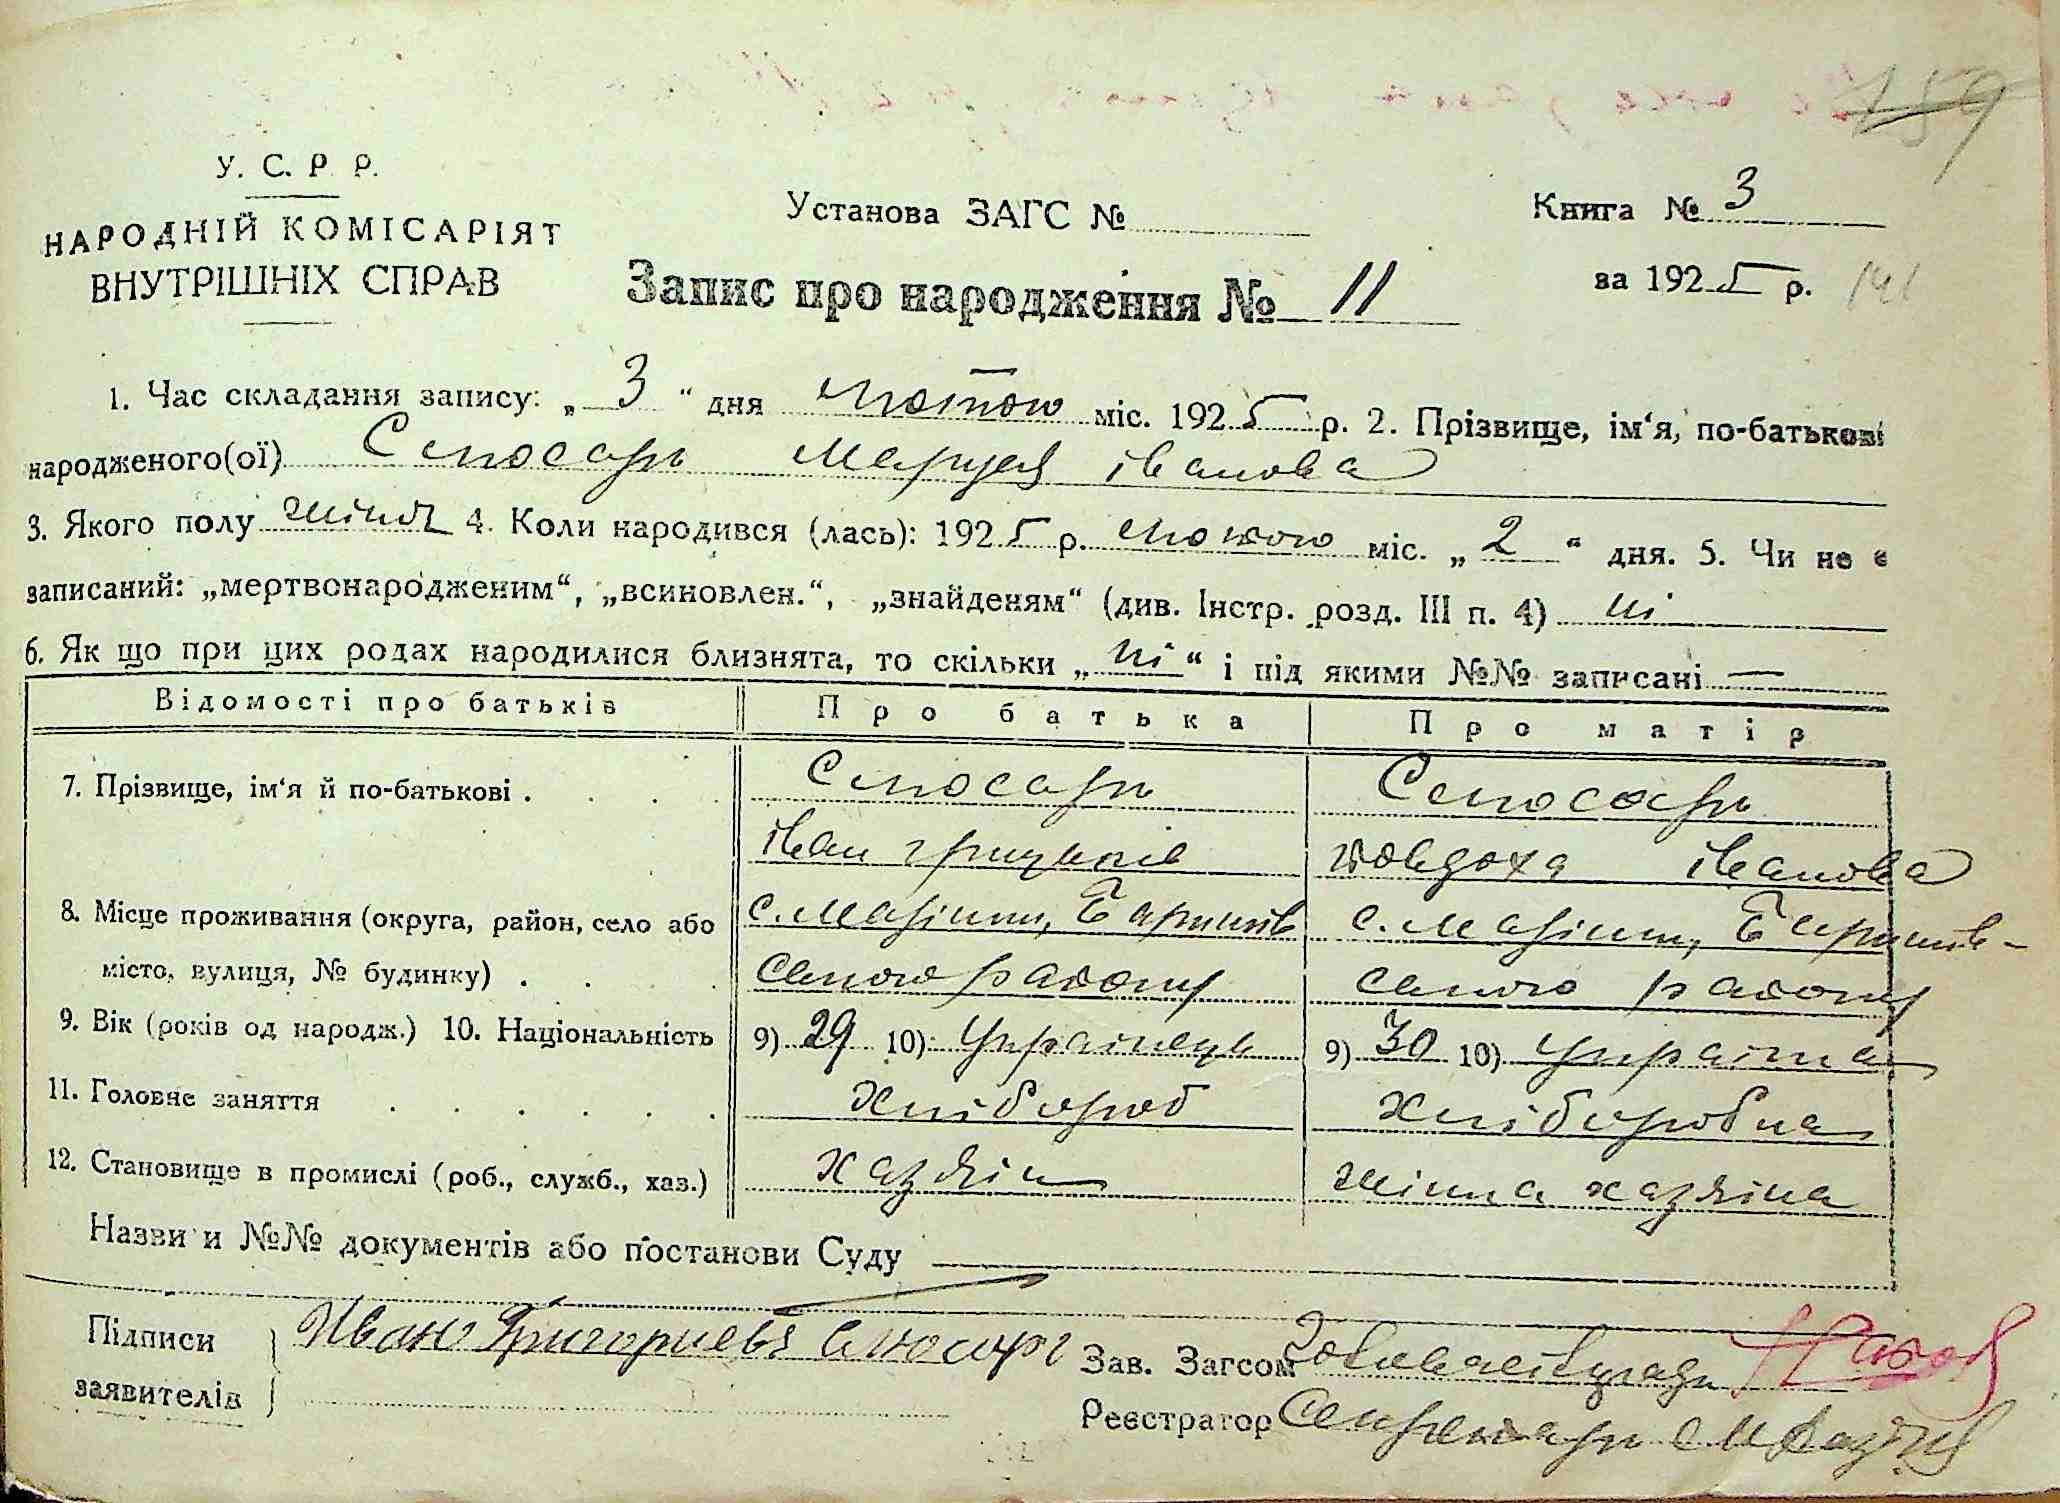 159
У. С. Р. Р.
НАРОДНІЙ КОМІСАРІЯТ
ВНУТРІШНІХ СПРАВ
Установа ЗАГС №
Книга № 3
за 1925 р. 141
Запис про народження № 11
1. Час складання запису: „ 3 “ дня лютого міс. 1925 р. 2. Прізвище, ім‘я, по-батькові
народженого(ої) Слюсарь Маруся Іванова
3. Якого полу жіноч 4. Коли народився (лась): 1925 р. лютого міс. „ 2 “ дня. 5. Чи не є
записаний: „мертвонародженим“, „всиновлен.“, „знайденям“ (див. Інстр. розд. III п. 4) ні
6. Як що при цих родах народилися близнята, то скільки „ ні “ і під якими №№ записані —
Відомості про батьків Про батька Про матір
7. Прізвище, ім‘я й по-батькові . Слюсарь Слюсарь
Іван Грицьків Іовдоха Іванова
8. Місце проживання (округа, район, село або с. Мазінки, Баришів с. Мазінки, Баришів-
місто, вулиця, № будинку) . ського району ського району
9. Вік (років од народж.) 10. Національність 9) 29 10) Українець 9) 30 10) Україنка
11. Головне заняття хлібороб хліборобка
12. Становище в промислі (роб., служб., хаз.) хазяін жінка хазяіна
Назви и №№ документів або постанови Суду
Підписи Иван Григориевъ Слюсарь Зав. Загсом
заявителів Реєстратор Секретарь